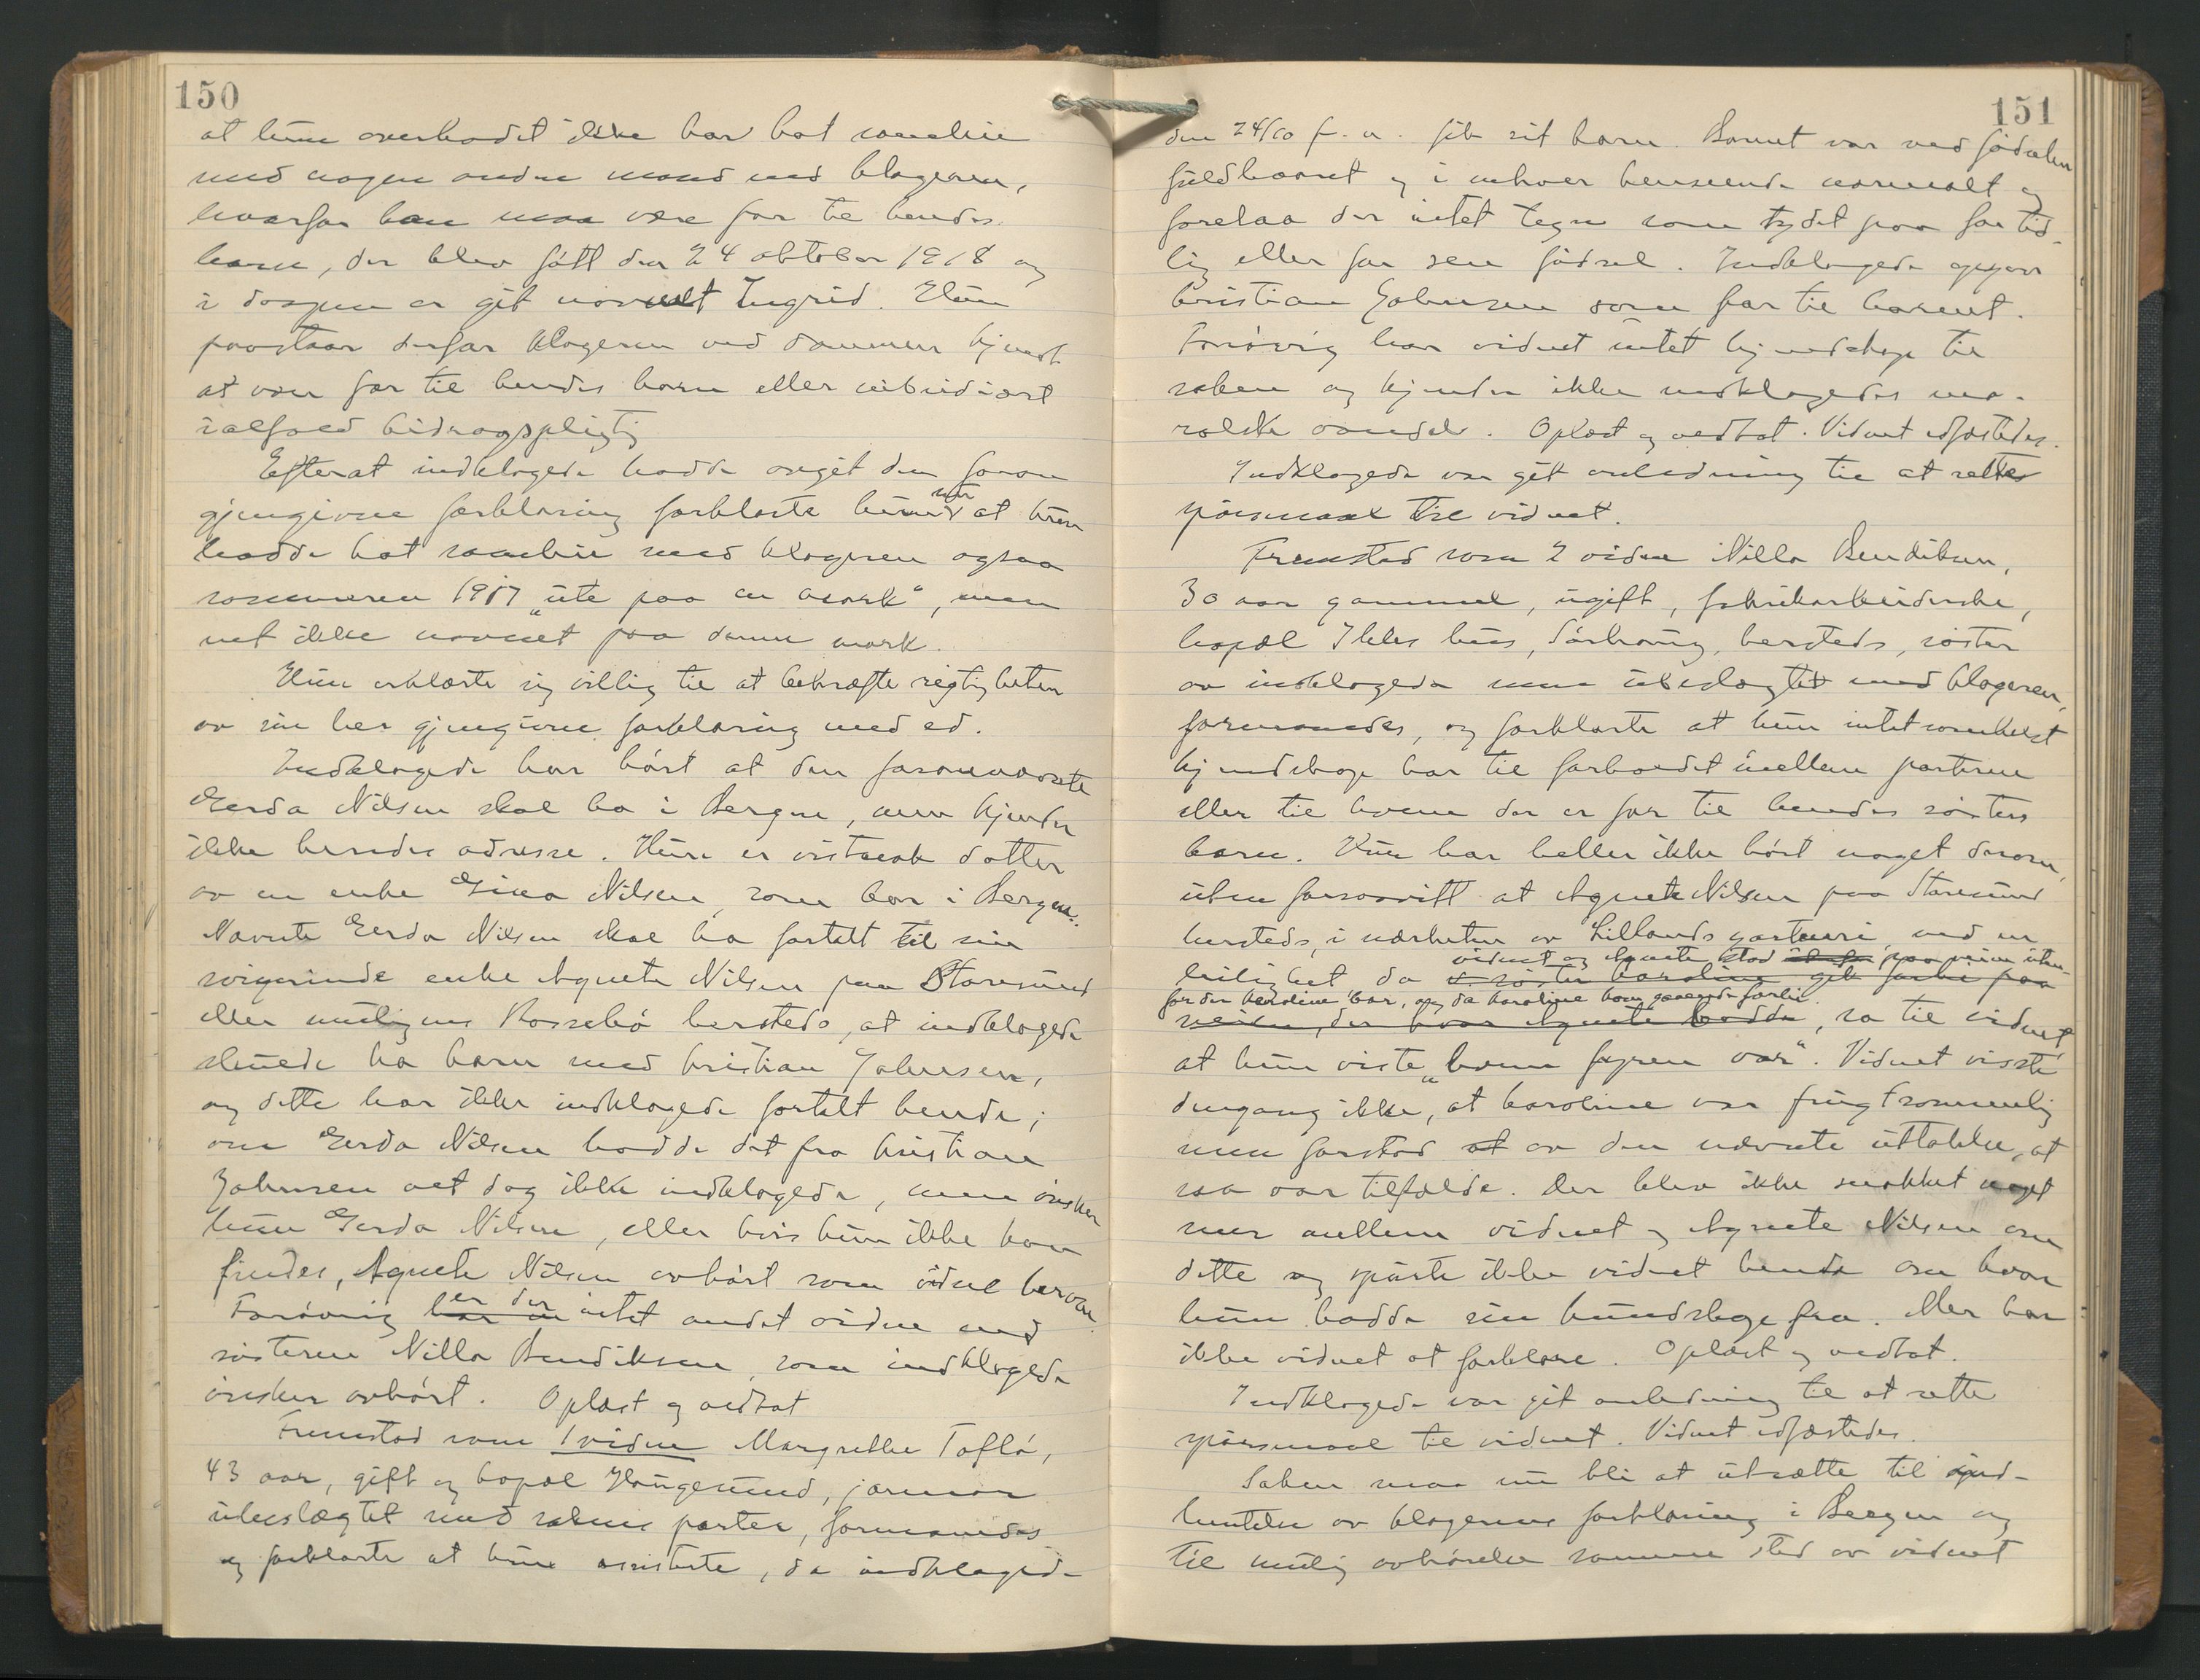 150
at hun overhodet ikke har hat samleie
med nogen anden mand end klageren,
hvorfor han maa være far til hendes
barn, der blev født den 24 oktober 1918 og
i daapen er git navnet Ingrid. Hun
paastaar derfor klageren ved dommen kjendt
at være far til hendes barn eller subsidiært
ialfald bidragspligtig
Efterat indklagede hadde avgit den foran
gjengivne forklaring forklarte hun at hun
hadde hat samleie med klageren ogsaa
sommeren 1917 „ute paa en mark“, men
vet ikke navnet paa denne mark.
Hun erklærte sig villig til at bekræfte rigtigheten
av sin her gjengivne forklaring med ed.
Indklagede har hørt at den forannævnte
Gerda Nilsen skal bo i Bergen, men kjender
ikke hendes adresse. Hun er vistnok datter
av en enke Gina Nilsen, som bor i Bergen.
Nævnte Gerda Nilsen skal ha fortalt til sin
svigerinde enke Agnete Nilsen paa Storesund
eller muligens Rossebø hersteds, at indklagede
skulde ha barn med Kristian Johnsen,
og dette har ikke indklagede fortalt hende;
om Gerda Nilsen hadde det fra Kristian
Johnsen vet dog ikke indklagede, men ønsker
hun Gerda Nilsen, eller hvis hun ikke kan
findes, Agnete Nilsen avhørt som vidne herom.
Forøvrig er der intet andet vidne end
søsteren Nilla Bendiksen, som indklagede
ønsker avhørt. Oplæst og vedtat
Fremstod som 1 vidne Margrethe Tofló,
43 aar, gift og bopæl Haugesund, jormor
ubeslægtet med sakens parter, formanedes
og forklarte at hun assisterte, da indklagede
151
den 24/10 f. a. fik sit barn. Barnet var ved fødselen
fuldbaaret og i enhver henseende normalt og
forelaa der intet tegn som tydet paa for tid-
lig eller for sen fødsel. Indklagede opgav
Kristian Johnsen som far til barnet.
Forøvrig har vidnet intet kjendskap til
saken og kjender ikke indklagedes mo-
ralske vandel. Oplæst og vedtat. Vidnet edfæstedes.
Indklagede var git anledning til at rette
spørsmaal til vidnet.
Fremstod som 2 vidne Nilla Bendiksen,
30 aar gammel, ugift, fabrikarbeiderske,
bopæl Ikles hus, Sørhaug, hersteds, søster
av indklagede men ubeslægtet med klageren,
formanedes, og forklarte at hun intetsomhelst
kjendskap har til forholdet mellem parterne
eller til hvem der er far til hendes søsters
barn. Hun har heller ikke hørt noget derom,
uten forsaavitt at Agnete Nilsen paa Storesund
hersteds, i nærheten av Lillands gartneri, ved en
vidnet og Agnete stod paa veien uten-
leilighet da søster Karoline gik forbi paa
for der Karoline bor, og da Karoline kom gaaende forbi
veien, der hvor Agnete bodde, sa til vidnet
at hun viste „hvem fyren var“. Vidnet visste
dengang ikke, at Karoline var frugtsommelig
men forstod at av den nævnte uttalelse, at
saa var tilfælde. Der blev ikke snakket noget
mer mellem vidnet og Agnete Nilsen om
dette og spurte ikke vidnet hende om hvor
hun hadde sin kundskap fra. Mer har
ikke vidnet at forklare. Oplæst og vedtat.
Indklagede var git anledning til at rette
spørsmaal til vidnet. Vidnet edfæstedes.
Saken maa nu bli at utsætte til ind-
hentelse av klagerens forklaring i Bergen og
til mulig avhørelse samme sted av vidnet